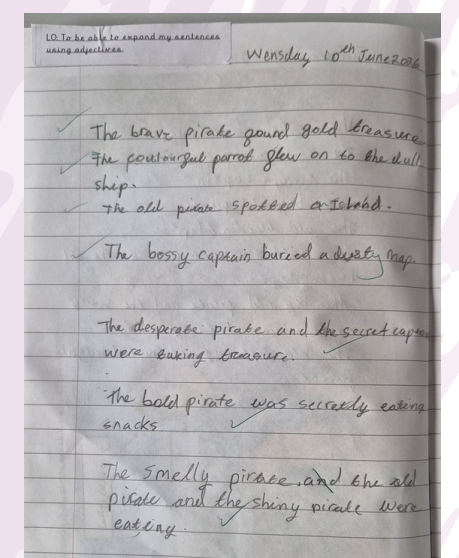 LO: To be able to expand my sentences
using adjectives.
Wensday 10th June 2026
The brave pirate gound gold treasure
The coulourgul parrot glew on to the dull
ship.
The old pirate spotted an Island.
The bossy captain buried a dusty map.
The desperate pirate and the secret capta
were taking treasure.
The bold pirate was secretly eating
snacks
The smelly pirate, and the old
pirate and the shiny pirate were
eating.